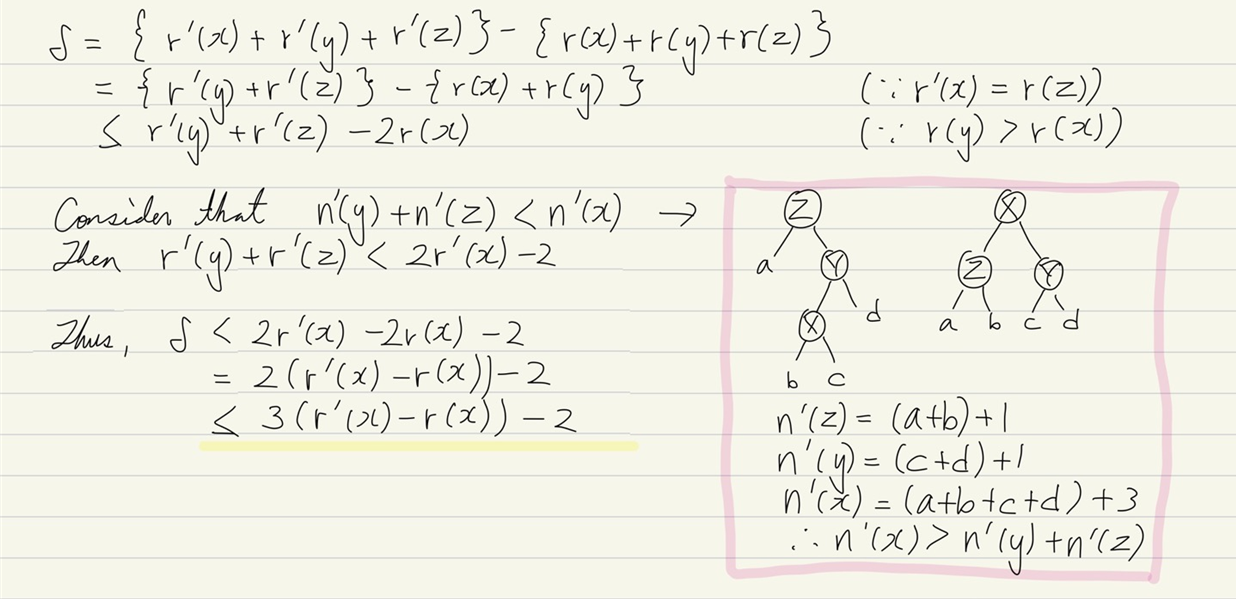 δ = { r'(x) + r'(y) + r'(z) } - { r(x) + r(y) + r(z) }
= { r'(y) + r'(z) } - { r(x) + r(y) } (∵ r'(x) = r(z))
≤ r'(y) + r'(z) - 2r(x) (∵ r(y) > r(x))
Consider that n'(y) + n'(z) < n'(x) →
Then r'(y) + r'(z) < 2r'(x) - 2
Thus, δ < 2r'(x) - 2r(x) - 2
= 2(r'(x) - r(x)) - 2
≤ 3(r'(x) - r(x)) - 2
Z
a Y
X d
b c
X
Z Y
a b c d
n'(z) = (a+b) + 1
n'(y) = (c+d) + 1
n'(x) = (a+b+c+d) + 3
∴ n'(x) > n'(y) + n'(z)